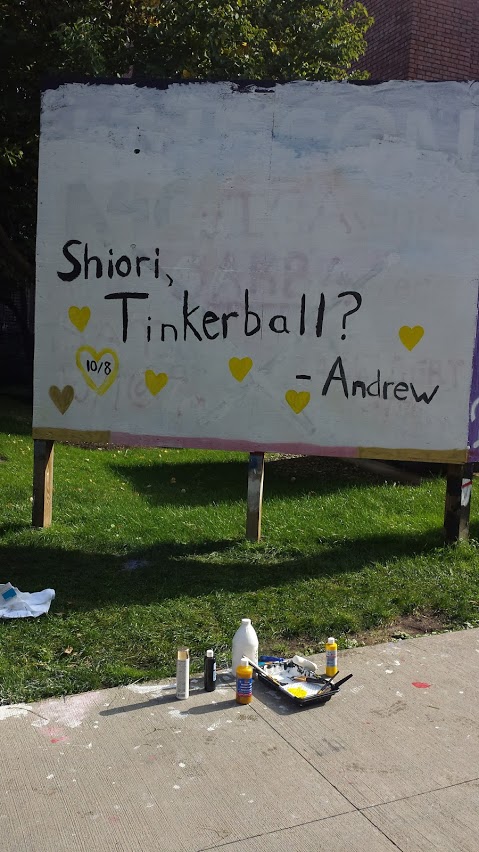 Shiori,
Tinkerball?
10/8
- Andrew